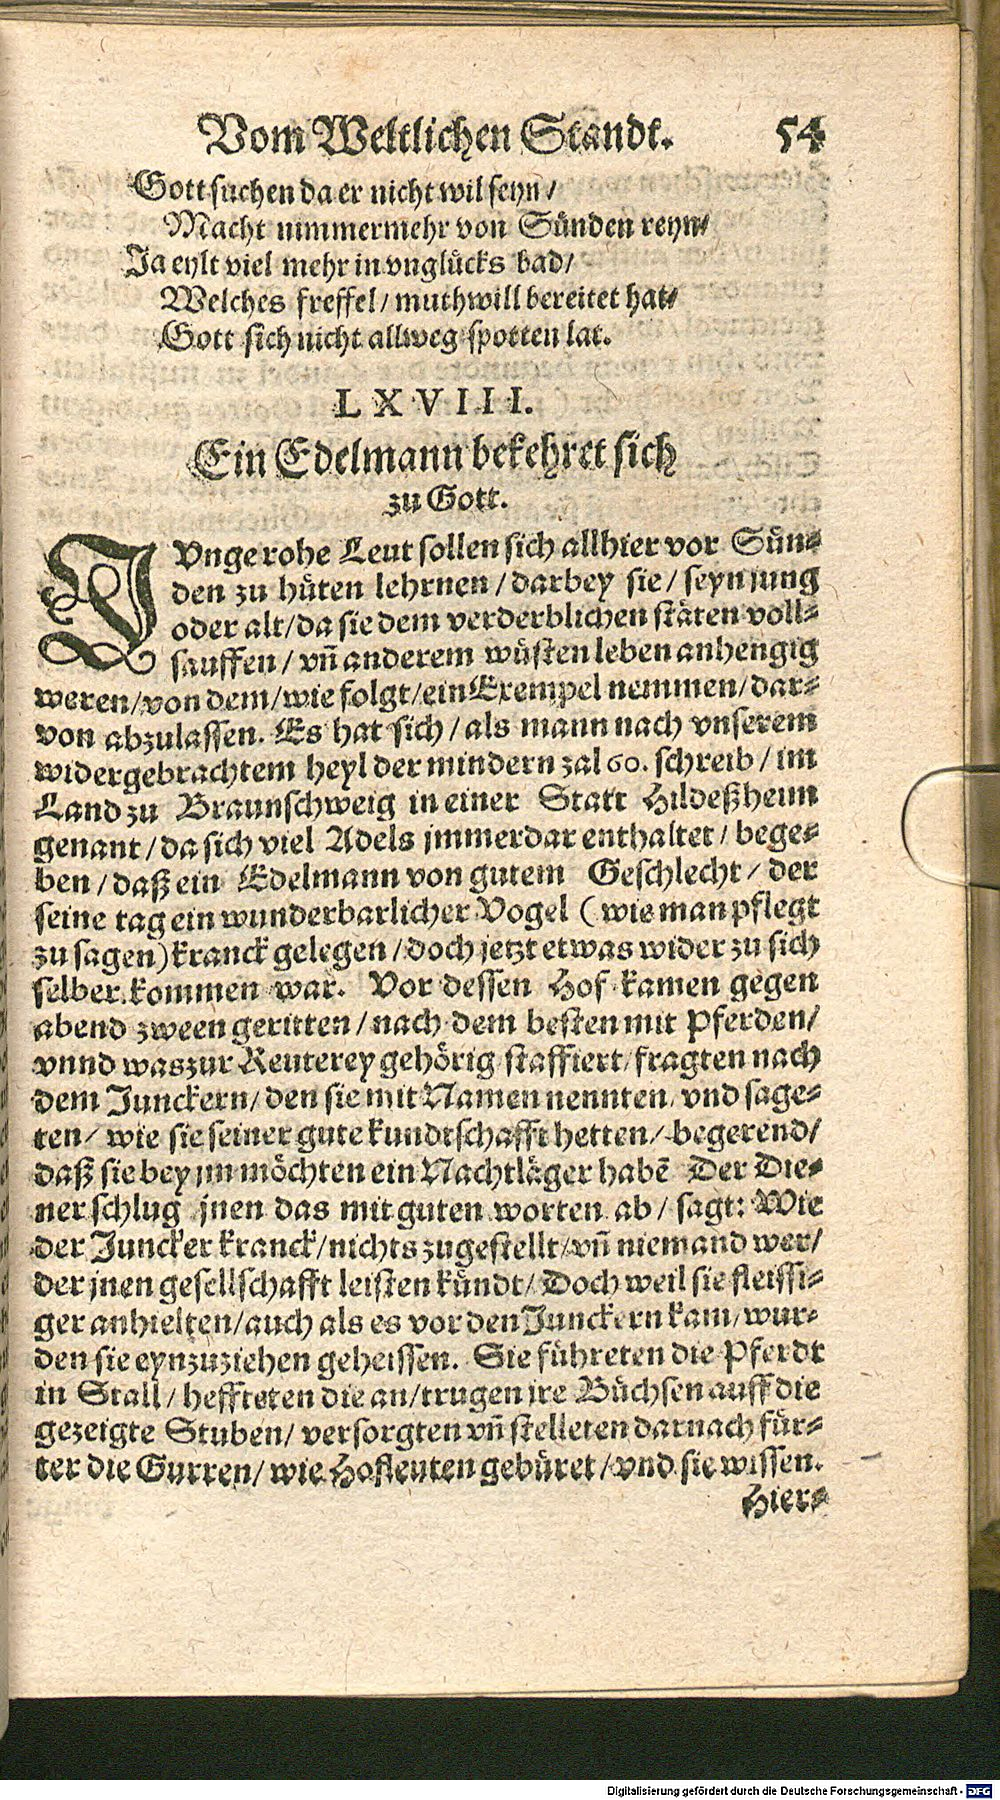 Vom Weltlichen Standt. 54
Gott suchen da er nicht wil seyn/
Macht nimmermehr von Sünden reyn/
Ja eylt viel mehr in vnglücks bad/
Welches freffel/ muthwill bereitet hat/
Gott sich nicht allweg spotten lat.
LXVIII.
Ein Edelmann bekehret sich
zu Gott.
JVnge rohe Leut sollen sich allhier vor Sün-
den zu hüten lehrnen/ darbey sie/ seyn jung
oder alt/ da sie dem verderblichen stäten voll-
sauffen/ vñ anderem wüsten leben anhengig
weren/ von dem/ wie folgt/ ein Exempel nemmen/ dar-
von abzulassen. Es hat sich/ als mann nach vnserem
widergebrachtem heyl der mindern zal 60. schreib/ im
Land zu Braunschweig in einer Statt Hildeßheim
genant/ da sich viel Adels jmmerdar enthaltet/ bege-
ben/ daß ein Edelmann von gutem Geschlecht/ der
seine tag ein wunderbarlicher Vogel (wie man pflegt
zu sagen) kranck gelegen/ doch jetzt etwas wider zu sich
selber kommen war. Vor dessen Hof kamen gegen
abend zween geritten/ nach dem besten mit Pferden/
vnnd was zur Reuterey gehörig staffiert/ fragten nach
dem Junckern/ den sie mit Namen nennten/ vnd sage-
ten/ wie sie seiner gute kundtschafft hetten/ begerend/
daß sie bey im möchten ein Nachtläger habē Der Die-
ner schlug jnen das mit guten worten ab/ sagt: Wie
der Juncker kranck/ nichts zugestellt/ vñ niemand wer/
der jnen gesellschafft leisten kündt/ Doch weil sie fleissi-
ger anhielten/ auch als es vor den Junckern kam/ wur-
den sie eynzuziehen geheissen. Sie führeten die Pferdt
in Stall/ heffteten die an/ trugen ire Büchsen auff die
gezeigte Stuben/ versorgten vñ stelleten darnach für-
ter die Gurren/ wie Hofleuten gebüret/ vnd sie wissen.
Hier-
Digitalisierung gefördert durch die Deutsche Forschungsgemeinschaft - DFG